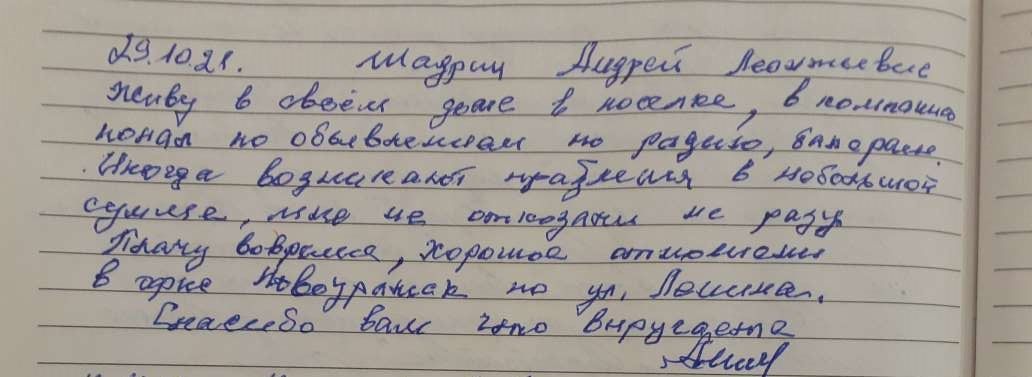 29.10.21. Шадриц Андрей Леонтьевис
живу в своём доме в поселке, в компанию
попал по объевлениям по радио, банерам.
Иногда возникают праблемы в небольшой
сумме, мне не отказали не разу.
Плачу вовремя, хорошое отношения
в офисе Новоуральск по ул. Ленина.
Спасибо вам что выручаете